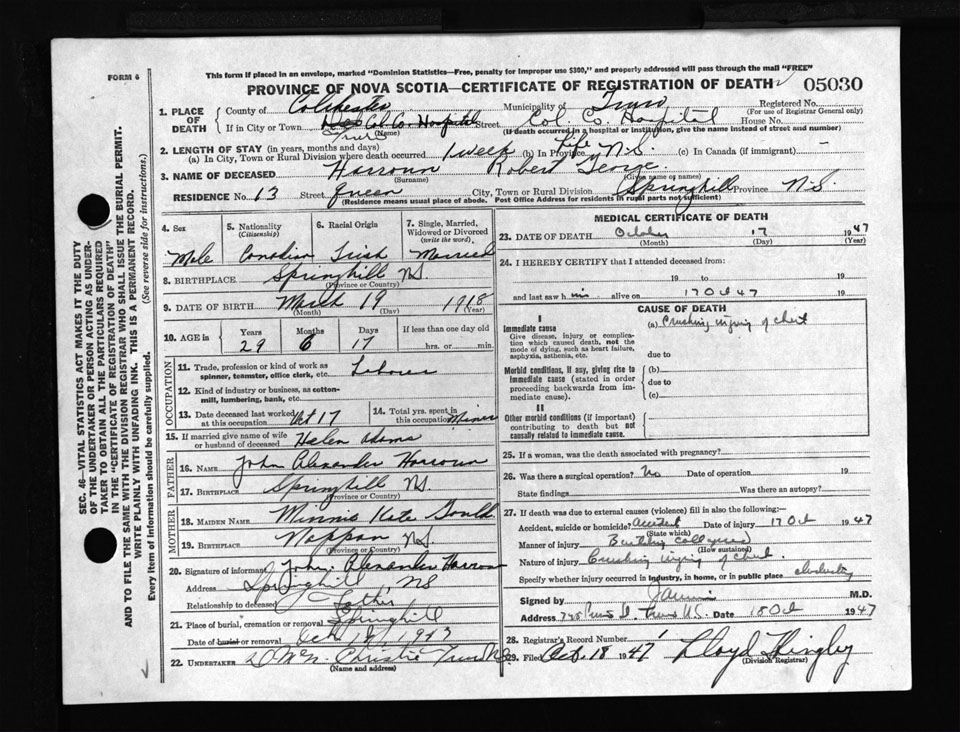 FORM 6
This form if placed in an envelope, marked "Dominion Statistics—Free, penalty for improper use $300," and properly addressed will pass through the mail "FREE"
PROVINCE OF NOVA SCOTIA—CERTIFICATE OF REGISTRATION OF DEATH 05030
1. PLACE OF DEATH
County of Colchester Municipality of Truro Registered No.
(For use of Registrar General only)
If in City or Town Col. Co. Hospital Street Col. Co. Hospital House No.
Truro (Name) (If death occurred in a hospital or institution, give the name instead of street and number)
2. LENGTH OF STAY (in years, months and days)
(a) In City, Town or Rural Division where death occurred 1 week (b) In Province Life N.S. (c) In Canada (if immigrant) —
3. NAME OF DECEASED Harroun Robert George
(Surname) (Given name or names)
RESIDENCE No. 13 Street Queen City, Town or Rural Division Springhill Province N.S.
(Residence means usual place of abode. Post Office Address for residents in rural parts not sufficient)
4. Sex
Male
5. Nationality
(Citizenship)
Canadian
6. Racial Origin
Irish
7. Single, Married, Widowed or Divorced
(write the word)
Married
8. BIRTHPLACE Springhill NS
(Province or Country)
9. DATE OF BIRTH March 19 1918
(Month) (Day) (Year)
10. AGE in Years Months Days If less than one day old
29 6 17 hrs. or min.
OCCUPATION
11. Trade, profession or kind of work as
spinner, teamster, office clerk, etc. Laborer
12. Kind of industry or business, as cotton-
mill, lumbering, bank, etc.
13. Date deceased last worked at this occupation Oct 17
14. Total yrs. spent in this occupation
15. If married give name of wife
or husband of deceased Helen Adams
FATHER
16. NAME John Alexander Harroun
17. BIRTHPLACE Springhill NS.
(Province or Country)
MOTHER
18. MAIDEN NAME Minnie Kate Gould
19. BIRTHPLACE Nappan NS.
(Province or Country)
20. Signature of informant John Alexander Harroun
Address Springhill, NS
Relationship to deceased Father
21. Place of burial, cremation or removal Springhill
Date of burial or removal Oct
22. UNDERTAKER Christie Truro NS
(Name and address)
MEDICAL CERTIFICATE OF DEATH
23. DATE OF DEATH October 17 1947
(Month) (Day) (Year)
24. I HEREBY CERTIFY that I attended deceased from:
19 to 19
and last saw him alive on 17 Oct 47 19
CAUSE OF DEATH
I
Immediate cause
Give disease, injury or complication which caused death, not the mode of dying, such as heart failure, asphyxia, asthenia, etc.
(a) Crushing injury of chest
due to
Morbid conditions, if any, giving rise to immediate cause (stated in order proceeding backwards from immediate cause).
(b)
due to
(c)
II
Other morbid conditions (if important) contributing to death but not causally related to immediate cause.
25. If a woman, was the death associated with pregnancy?
26. Was there a surgical operation? No Date of operation 19
State findings Was there an autopsy?
27. If death was due to external causes (violence) fill in also the following:
Accident, suicide or homicide? accident Date of injury 17 Oct 1947
(State which)
Manner of injury Building collapsed
(How sustained)
Nature of injury Crushing injury of chest.
Specify whether injury occurred in industry, in home, or in public place
Signed by M.D.
Address Truro N.S. Date 18 Oct 1947
28. Registrar's Record Number
29. Filed Oct. 18 1947 Lloyd
(Division Registrar)
SEC. 46—VITAL STATISTICS ACT MAKES IT THE DUTY
OF THE UNDERTAKER OR PERSON ACTING AS UNDER-
TAKER TO OBTAIN ALL THE PARTICULARS REQUIRED
IN THE "CERTIFICATE OF REGISTRATION OF DEATH"
AND TO FILE THE SAME WITH THE DIVISION REGISTRAR WHO SHALL ISSUE THE BURIAL PERMIT.
WRITE PLAINLY WITH UNFADING INK. THIS IS A PERMANENT RECORD.
Every item of information should be carefully supplied. (See reverse side for instructions.)